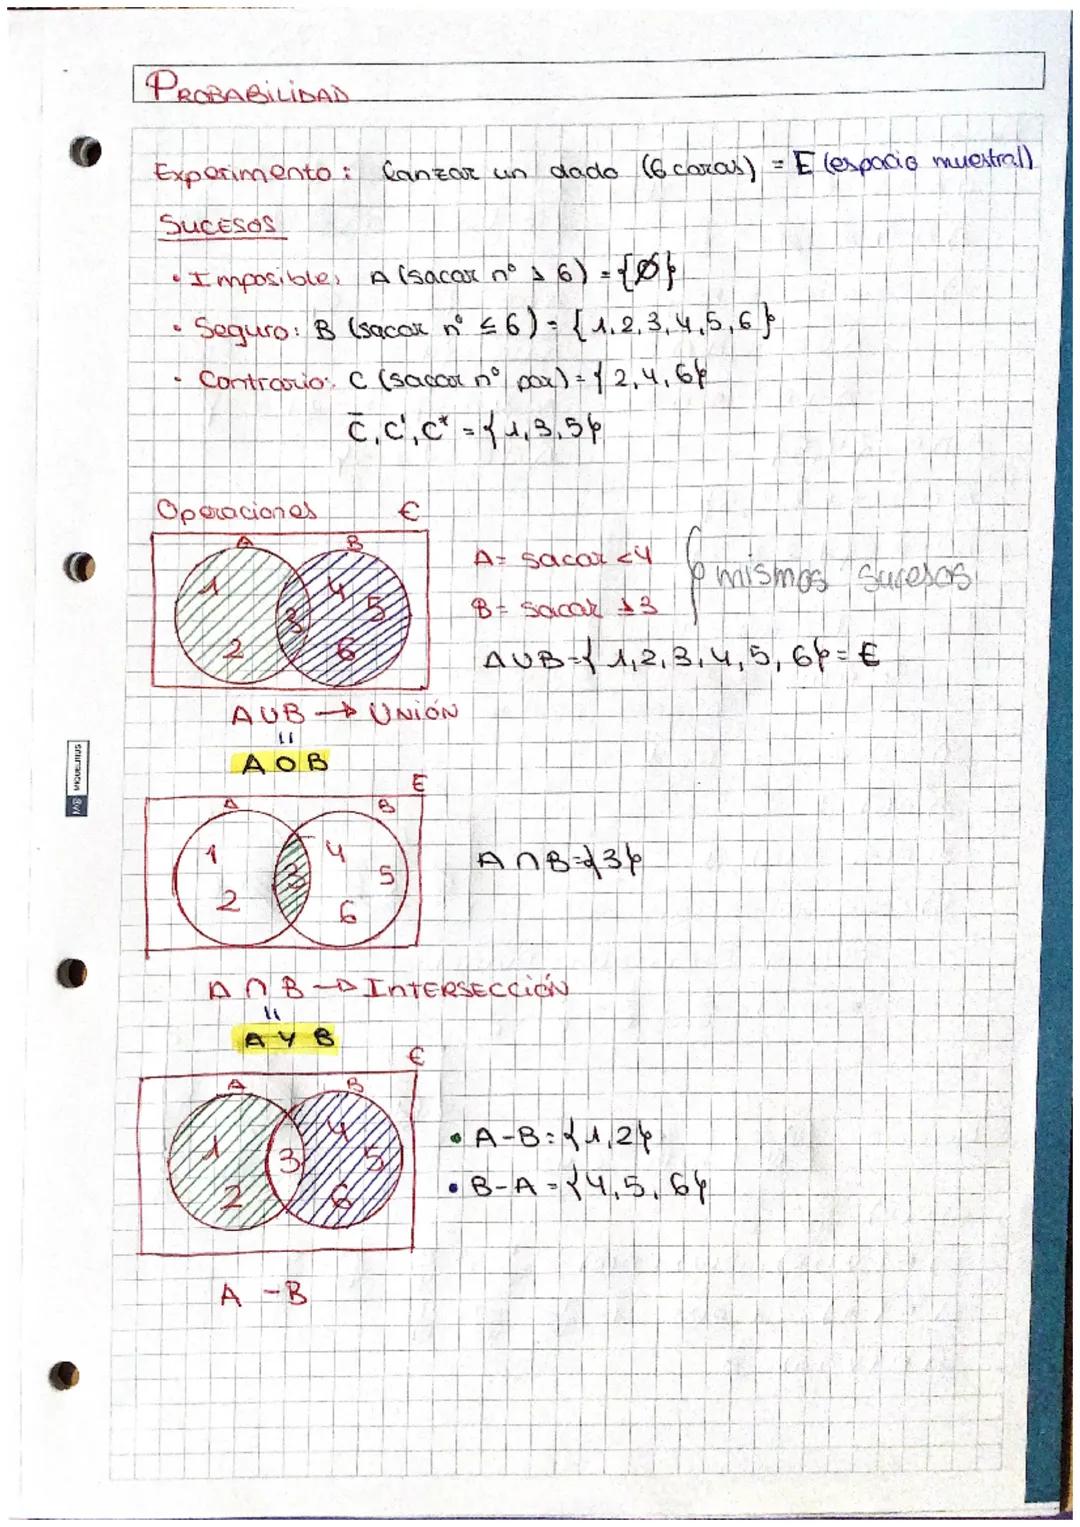 PROBABILIDAD
Experimento: Lanzar un dado (6 caras) = E (espacio muestral)
SUCESOS
• Imposible: A (sacar nº > 6) = {Ø}
• Seguro: B (sacar nº ≤ 6) = {1,2,3,4,5,6}
• Contrario: C (sacar nº par) = {2,4,6}
C̅, C', C* = {1,3,5}
Operaciones
E
A B
1 2 3 4 5 6
A = sacar <4
B = sacar ≥3
mismos sucesos
AUB = {1,2,3,4,5,6} = E
AUB → UNIÓN
"
A O B
E
A B
1 2 3 4 5 6
A ∩ B = {3}
A ∩ B → INTERSECCIÓN
"
A Y B
E
A B
1 2 3 4 5 6
• A-B: {1,2}
• B-A = {4,5,6}
A - B
MIQUELRIUS